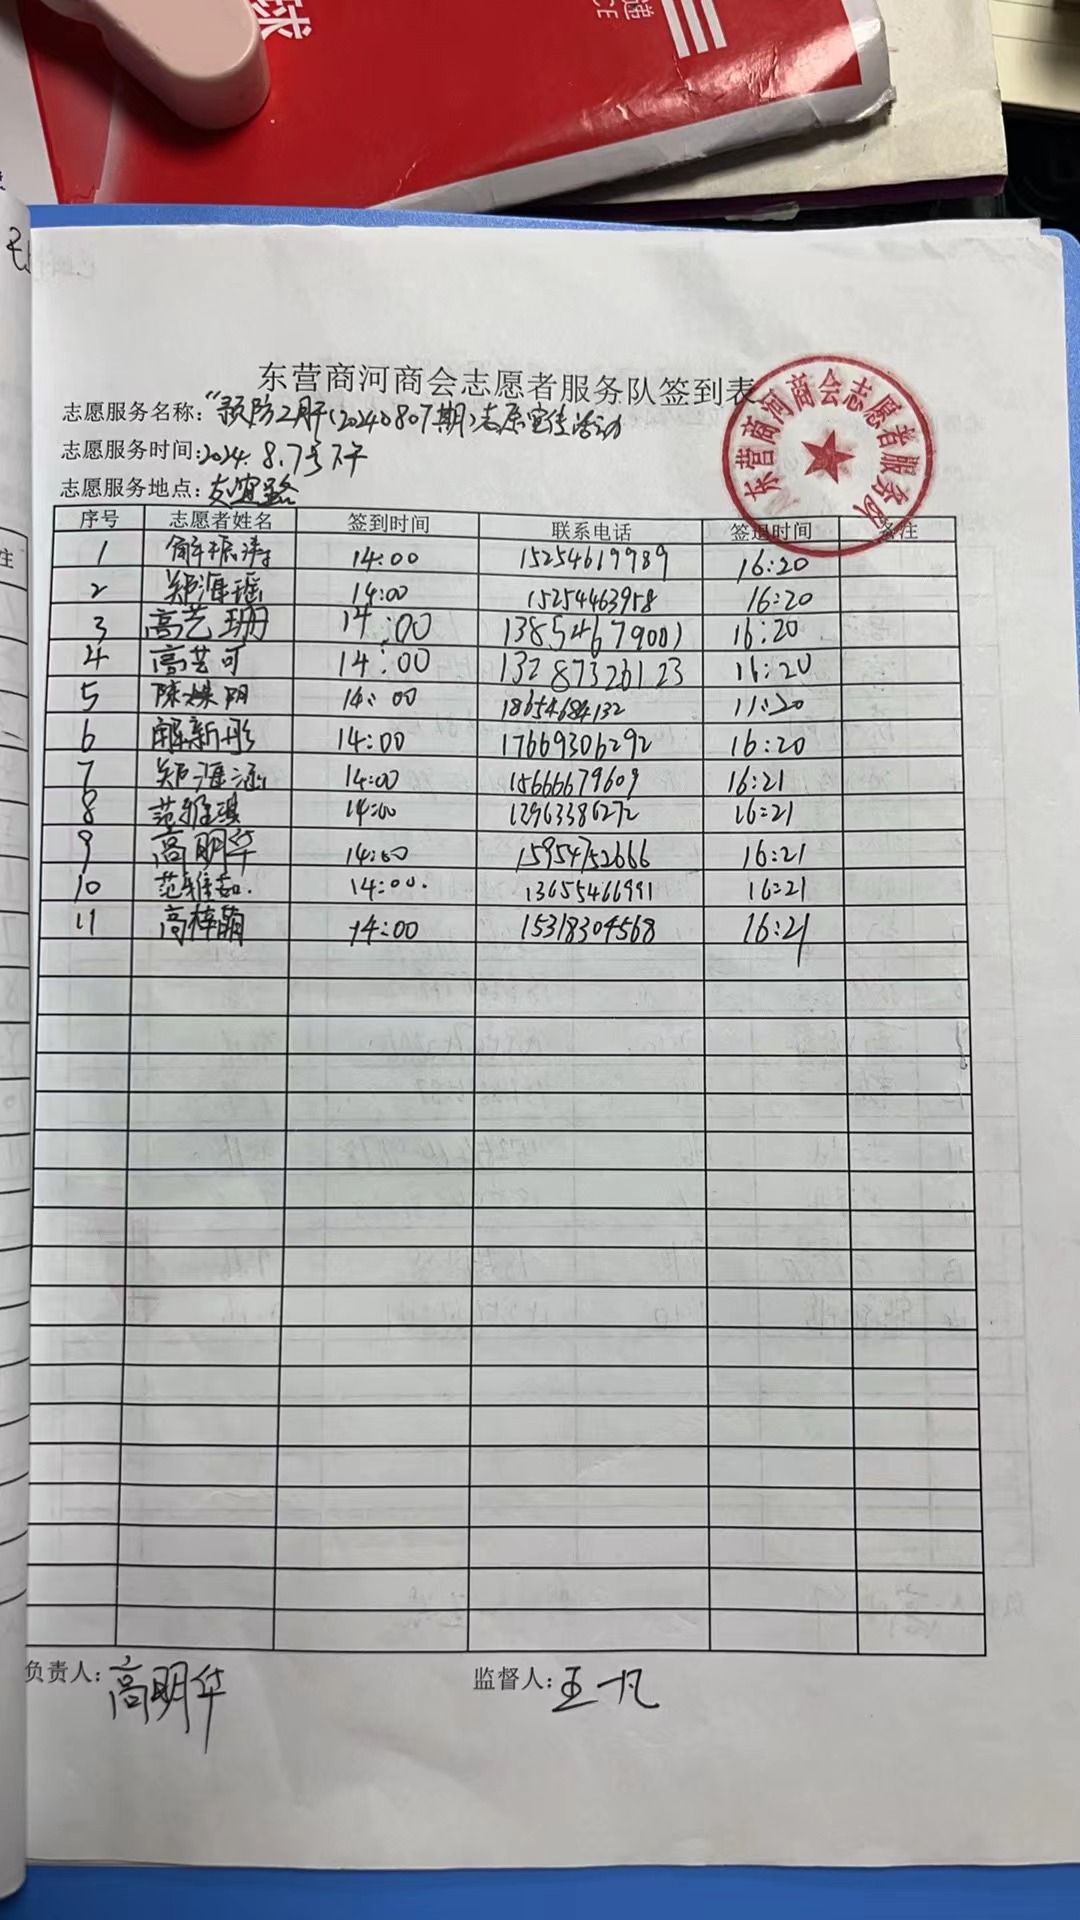 球
递
CE
东营商河商会志愿者服务队签到表
东营商河商会志愿者服务队
志愿服务名称:“预防乙肝(20240807期)志愿宣传活动
志愿服务时间:2024.8.7号下午
志愿服务地点:友谊路
序号 志愿者姓名 签到时间 联系电话 签退时间 备注
1 解振涛 14:00 15254619989 16:20
2 郑海瑶 14:00 15254463958 16:20
3 高艺珊 14:00 13854679001 16:20
4 高艺可 14:00 13287326123 16:20
5 陈姝玥 14:00 18654684132 11:20
6 解新彤 14:00 17669306292 16:20
7 郑海涵 14:00 15666679609 16:21
8 范雅琪 14:00 12963386272 16:21
9 高明华 14:00 15954752666 16:21
10 范雅茹. 14:00. 13655466991 16:21
11 高梓萌 14:00 15318304568 16:21
负责人:高明华 监督人:王一凡
注